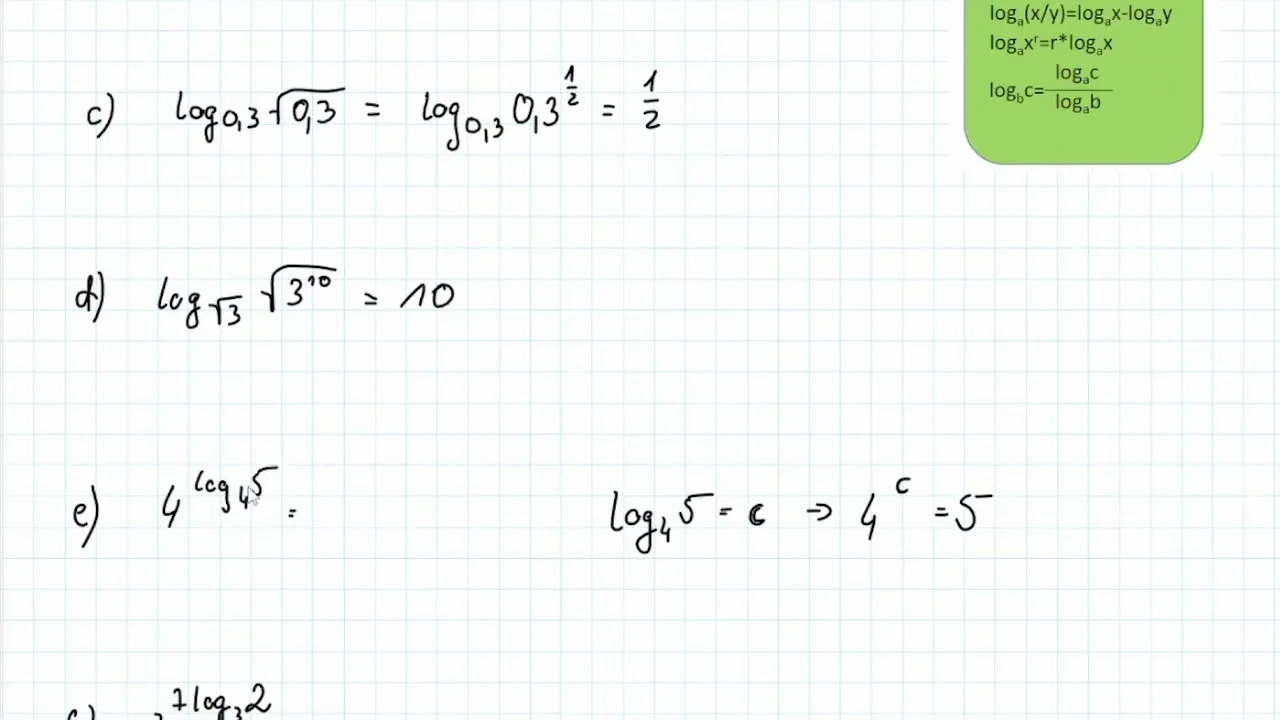 logₐ(x/y)=logₐx-logₐy
logₐxʳ=r*logₐx
log_b c= logₐc / logₐb
c) log₀,₃ √0,3 = log₀,₃ 0,3^(1/2) = 1/2
d) log_√3 √3¹⁰ = 10
e) 4^(log₄5) =
log₄ 5 = c → 4^c = 5
7log₃2